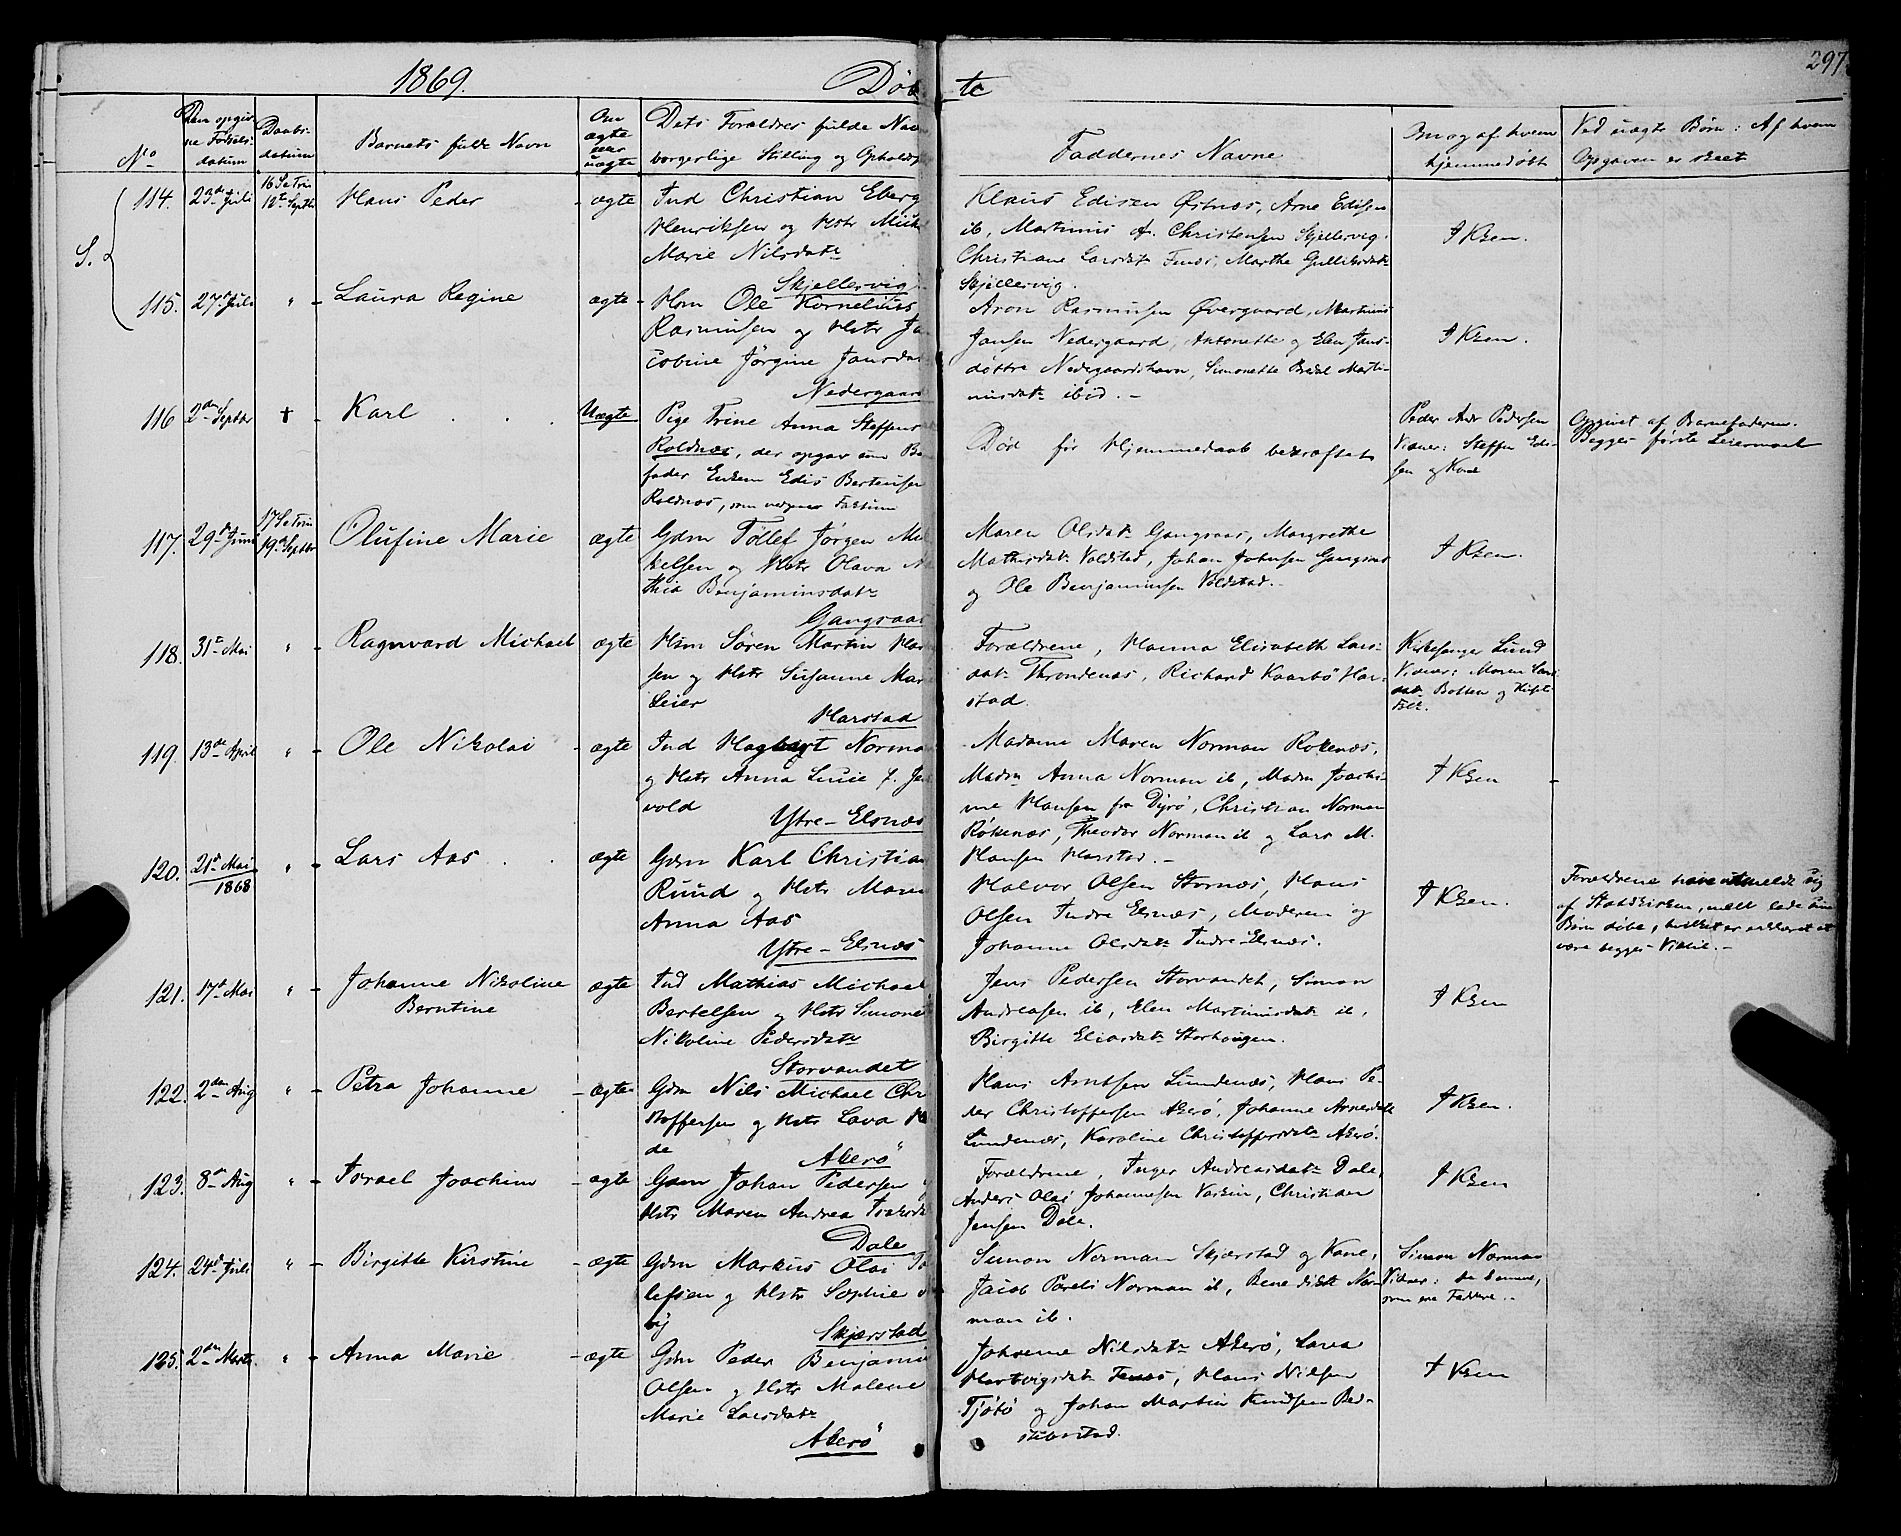 1869.
Døb
te
297
No
Den opgiv-
ne Fødsels-
datum
Daabs-
datum
Barnets fulde Navn
Om
ægte
eller
uægte
Dets Forældres fulde Nav
borgerlige Stilling og Opholds
Faddernes Navne
Om og af hvem
hjemmedøbt
Ved uægte Børn: Af hvem
Opgaven er skeet
S.
114.
23de Juli
16 S e Trin
12te Septbr
Hans Peder
ægte
Ind Christian Eberg
Henriksen og Hstr
Marie Nilsdatr
Skjellervig
Klaus Edisen Østnæs, Arne Edisen
ib, Martinus A. Christensen Skjellervig.
Christiane Larsdatr Fenæs, Marthe Gulliksdatr
Skjellervig.
I Kken.
115.
27de Juli
"
Laura Regine
ægte
Hsm Ole Kornelius
Rasmussen og Hstr Ja
cobine Jørgine Jansda
Nedergaard
Aron Rasmussen Øvergaard, Martinus
Jansen Nedergaard, Antonette og Elen Jans-
døttre Nedergaardshavn, Simonette Marti-
nusdatr ibid. -
I Kken.
116
2den Septbr
†
Karl
Uægte
Pige Trine Anna Steffens
Roldnæs, der opgav som Ba
fader Enkem Edis Berteusen
Roldnæs, som vedgaar Factum
Død før Hjemmedaab bekræftet
Peder Andr Pedersen
Vidner: Steffen Edi-
sen og Kone
Opgivet af Barnefaderen.
Begges første Leiermaal
117.
29de Juni
17 S e Trin
19de Septbr
Olufine Marie
ægte
Gdm Tollef Jørgen Mi
kelsen og Hstr Olava
thia Benjaminsdatr
Gangsaas
Maren Olsdatr Gangsaas, Margrethe
Mathisdatr Voldstad, Johan Johnsen Gangsaas
og Ole Benjaminsen Voldstad. -
I Kken.
118.
31te Mai
"
Ragnvard Michael
ægte
Hsm Søren Martin Han
sen og Hstr Susanne Mar
Leier
Harstad
Forældrene, Hanna Elisabeth Lars-
datr Throndenæs, Richard Kaarbö Har-
stad.
Kirkesanger Lund
Vidner: Maren Lars
datr Botten og
119.
13de April
"
Ole Nikolai
ægte
Ind Hagbart Norma
og Hstr Anna Lucie f.
vold
Ytre-Elsnæs
Madame Maren Norman Rokenæs,
Madm Anna Norman ib, Madm Joachi-
me Hansen fra Dyrø, Christian Norman
Røkenæs, Theodor Norman ib og Lars M.
Hansen Harstad. -
I Kken
120.
21de Mai
1868
"
Lars Aas
ægte
Gdm Karl Christian
Ruud og Hstr Maren
Anna Aas
Ytre-Elsnæs
Halvor Olsen Stornæs, Hans
Olsen Indre Elsnæs, Moderen og
Johanne Olsdatr Indre-Elsnæs.
I Kken.
Forældrene have utmeldt sig
af Statskirken, lade sine
Børn døbe, hvilket er erklæret at
være begges Villie. -
121.
17de Mai
"
Johanne Nikoline
Berntine
ægte
Ind Mathias Michael
Bertelsen og Hstr Simone
Nikoline Pedersdatr
Storvandet
Jens Pedersen Storvandet, Simon
Andreasen ib, Elen Martinusdatr ib,
Birgitte Eliasdatr Storhaugen.
I Kken
122.
2den Aug
"
Petra Johanne
ægte
Gdm Nils Michael Chr
stoffersen og Hstr Lava
de
Akerö
Hans Arntsen Lundenæs, Hans Pe-
der Christoffersen Akerö, Johanne Arnesdatr
Lundenæs, Karoline Christoffersdatr Akerö.
I Kken.
123.
8de Aug
"
Israel Joachim
ægte
Gdm Johan Pedersen
Hstr Maren Andrea Isaksda
Dale
Forældrene, Inger Andreasdatr Dale,
Anders Olai Johannesen Vaskin, Christian
Jensen Dale.
I Kken
124.
24de Juli
"
Birgitte Kirstine
ægte
Gdm Markus Olai To
lefsen og Hstr Sophie
vig
Skjærstad
Simon Norman Skjærstad og Kone,
Jacob Parelis Norman ib, Benedikte Nor-
man ib.
Simon Norman
Vidner: de samme,
som ere Faddere. -
125.
2den Marts
"
Anna Marie
ægte
Gdm Peder Benjamin
Olsen og Hstr Malene
Marie Larsdatr
Akerö
Johanne Nilsdatr Akerö, Lava
Hartvigsdatr Fenæs, Hans Nilsen
Tjøtö og Johan Martin Knudsen Bed-
stuenstad.
I Kken